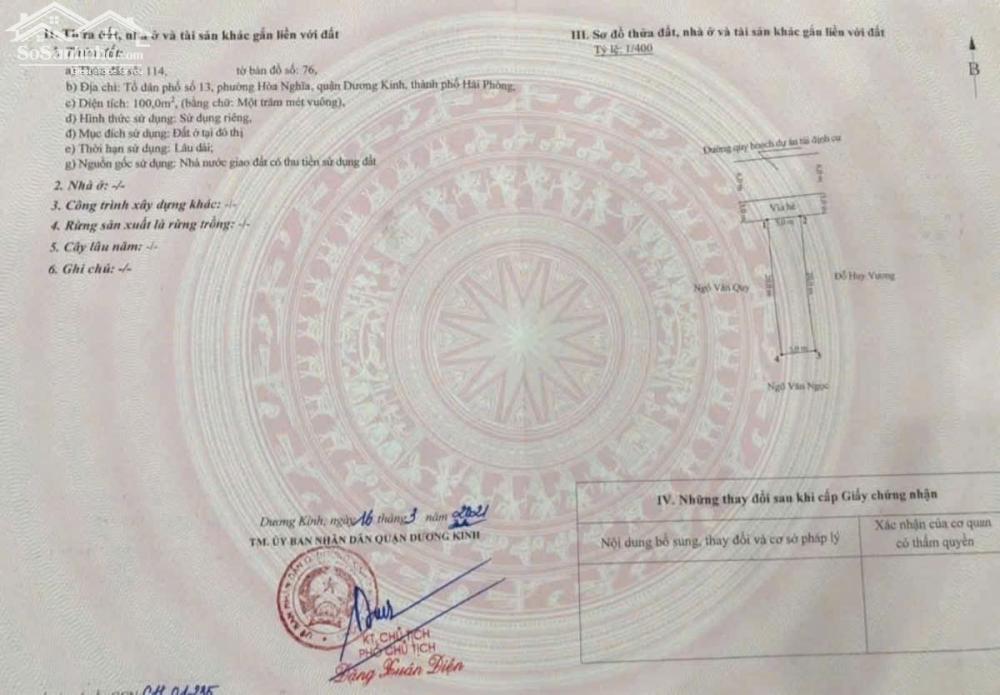 SoSanhNha.com
II. Thửa đất, nhà ở và tài sản khác gắn liền với đất
1. Thửa đất:
a) Thửa đất số: 114, tờ bản đồ số: 76,
b) Địa chỉ: Tổ dân phố số 13, phường Hòa Nghĩa, quận Dương Kinh, thành phố Hải Phòng,
c) Diện tích: 100,0m², (bằng chữ: Một trăm mét vuông),
d) Hình thức sử dụng: Sử dụng riêng,
đ) Mục đích sử dụng: Đất ở tại đô thị
e) Thời hạn sử dụng: Lâu dài;
g) Nguồn gốc sử dụng: Nhà nước giao đất có thu tiền sử dụng đất
2. Nhà ở: -/-
3. Công trình xây dựng khác: -/-
4. Rừng sản xuất là rừng trồng: -/-
5. Cây lâu năm: -/-
6. Ghi chú: -/-
Dương Kinh, ngày 16 tháng 3 năm 2021
TM. ỦY BAN NHÂN DÂN QUẬN DƯƠNG KINH
KT. CHỦ TỊCH
PHÓ CHỦ TỊCH
Đặng Xuân Diện
CH 01235
III. Sơ đồ thửa đất, nhà ở và tài sản khác gắn liền với đất
Tỷ lệ: 1/400
B
Đường quy hoạch dự án tái định cư
Vỉa hè
1 5,0 m 2
20,0 m
20,0 m
Ngô Văn Quy
Đỗ Huy Vương
4 5,0 m 3
Ngô Văn Ngọc
IV. Những thay đổi sau khi cấp Giấy chứng nhận
Nội dung bổ sung, thay đổi và cơ sở pháp lý
Xác nhận của cơ quan
có thẩm quyền